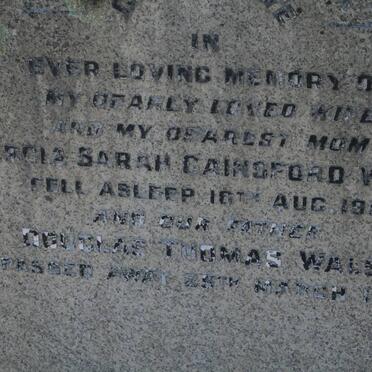 IN
EVER LOVING MEMORY O
MY DEARLY LOVED WIFE
AND MY DEAREST MOM
SARAH GAINSFORD W
FELL ASLEEP 16TH AUG. 19
AND OUR FATHER
DOUGLAS THOMAS WAL
PASSED AWAY 25TH MARCH 1